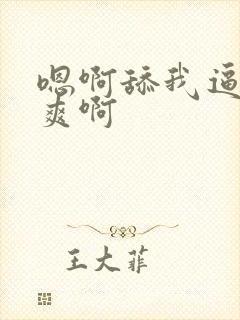 嗯啊舔我逼
爽啊
王大菲